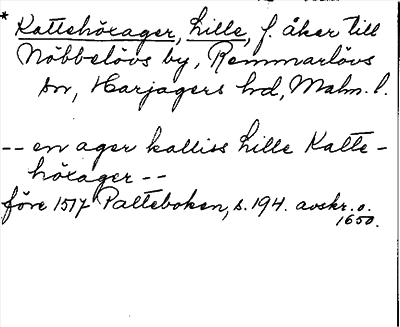 * Kattehörager, Lille, f. åker till
Nöbbelövs by, Remmarlövs
sn, Harjagers hd, Malm. l.
-- en ager kalliss Lille Katte-
hörager --
före 1517 Palteboken, s. 194. avskr. o.
1650.